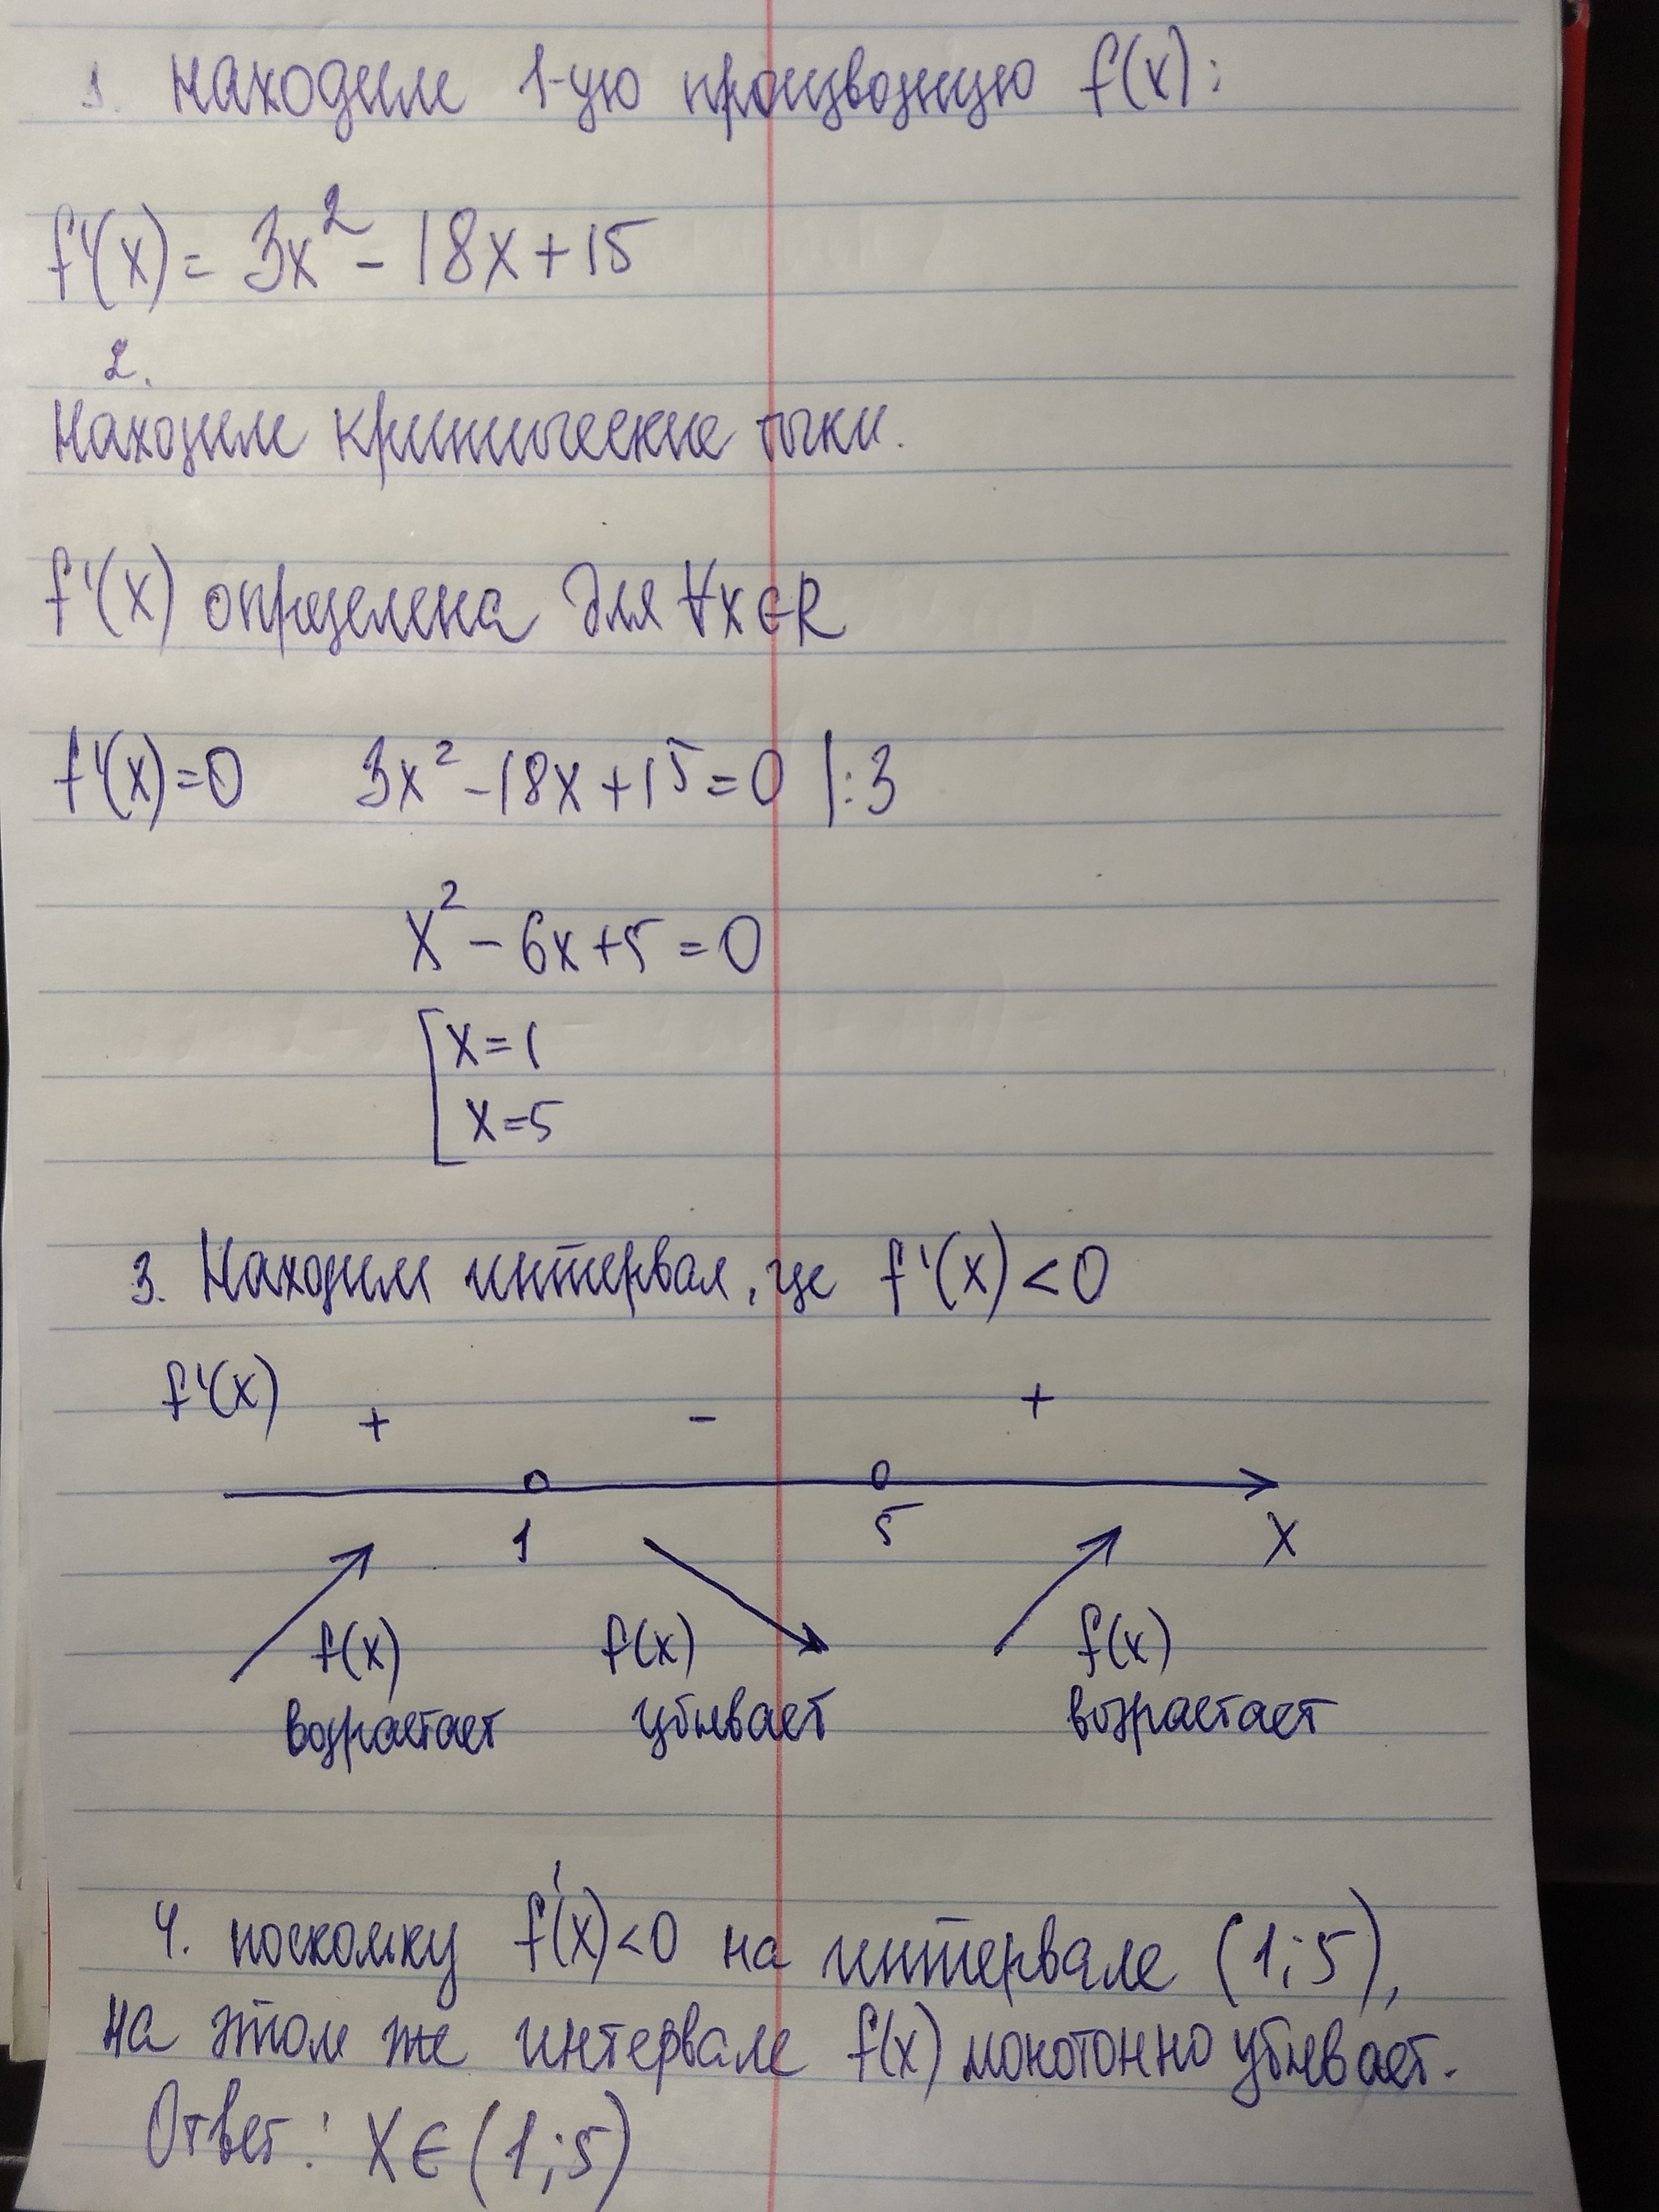 1. Находим 1-ую производную f(x):
f'(x) = 3x² - 18x + 15
2.
Находим критические точки.
f'(x) определена для ∀x∈R
f'(x)=0 3x² - 18x + 15 = 0 |:3
x² - 6x + 5 = 0
[x=1
x=5
3. Находим интервал, где f'(x) < 0
f'(x) + - +
1 5 x
f(x) f(x) f(x)
возрастает убывает возрастает
4. поскольку f'(x)<0 на интервале (1;5),
на этом же интервале f(x) монотонно убывает.
Ответ: X∈(1;5)